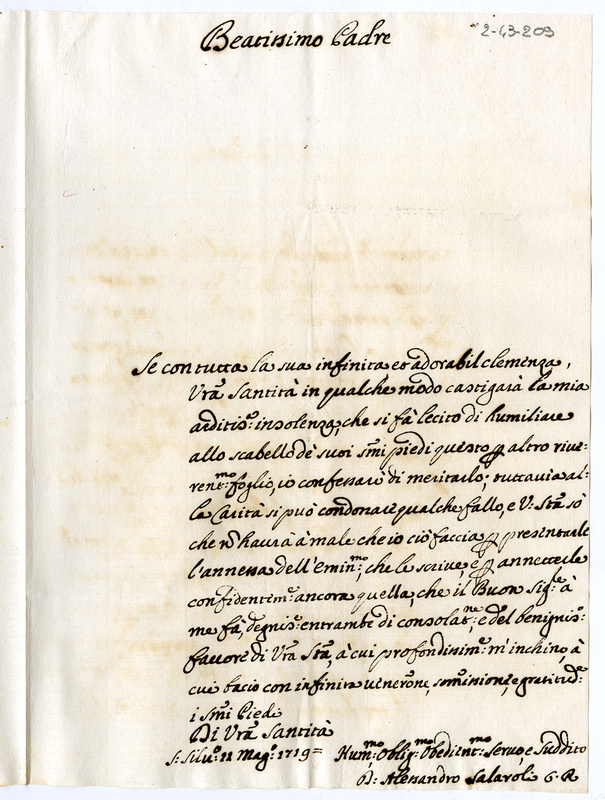 2-43-209
Beatissimo Padre
Se con tutta la sua infinita et adorabil clemenza,
Vrã Santità in qualche modo castigarà la mia
arditis:ª insolenza, che si fà lecito di humiliare
allo scabello de suoi smi piedi questo per altro rive-
rent:mo foglio, io confessarò di meritarlo; tuttavia al-
la Carità si può condonare qualche fallo, e V: Stà sò
che nõ haurà à male che io ciò faccia per presentarle
l'annessa dell'Emin:mo, che le scrive, e per annetterle
confidentem:e ancora quella, che il Buon Sig:re à
me fà, degnis:e entrambe di consolat:ne, e del benignis:o
favore di Vrã Stà, à cui profondissim:e m'inchino, à
cui bacio con infinita venerone, somissione, e gratitud:e
i smi Piedi
Di Vrã Santità
S: Silv:o 11 Mag:o 1719=
Hum:mo Oblig:mo Obedient:mo Servo, e Suddito
D: Alessandro Salaroli C. R.